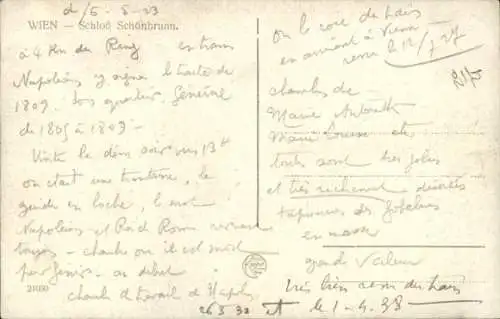 d/5-5-33
WIEN — Schloß Schönbrunn.
à 4 Km du Ring en tram
Napoléon y signa le traité de
1809. Son quartier Général
de 1805 à 1809 -
Visite le dim soir vers 13 h
on était une trentaine, le
guide en boche, le mot
Napoléon et Roi de Rome revenait
toujours - chambre où il est mort
par Génie - au début
chambre de travail de Napoléon
21060
26 5 32
on le voit du train
en arrivant à Vienne
revu le 12/7 37
chambres de
Marie Antoinette
Marie Louise etc
toutes sont très jolies
et très richement décorées
tapisseries des Gobelins
en masse
grand valeur
très bien revu du train
et le 1-4.38